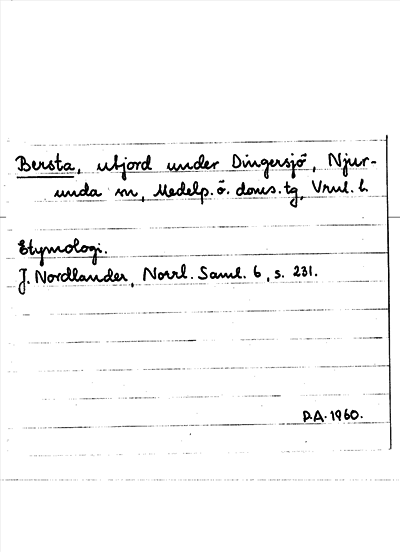 Bersta, utjord under Dingersjö, Njur-
unda sn, Medelp. ö. doms. tg, Vrnl. l.
Etymologi.
J. Nordlander, Norrl. Saml. 6, s. 231.
D.A. 1960.